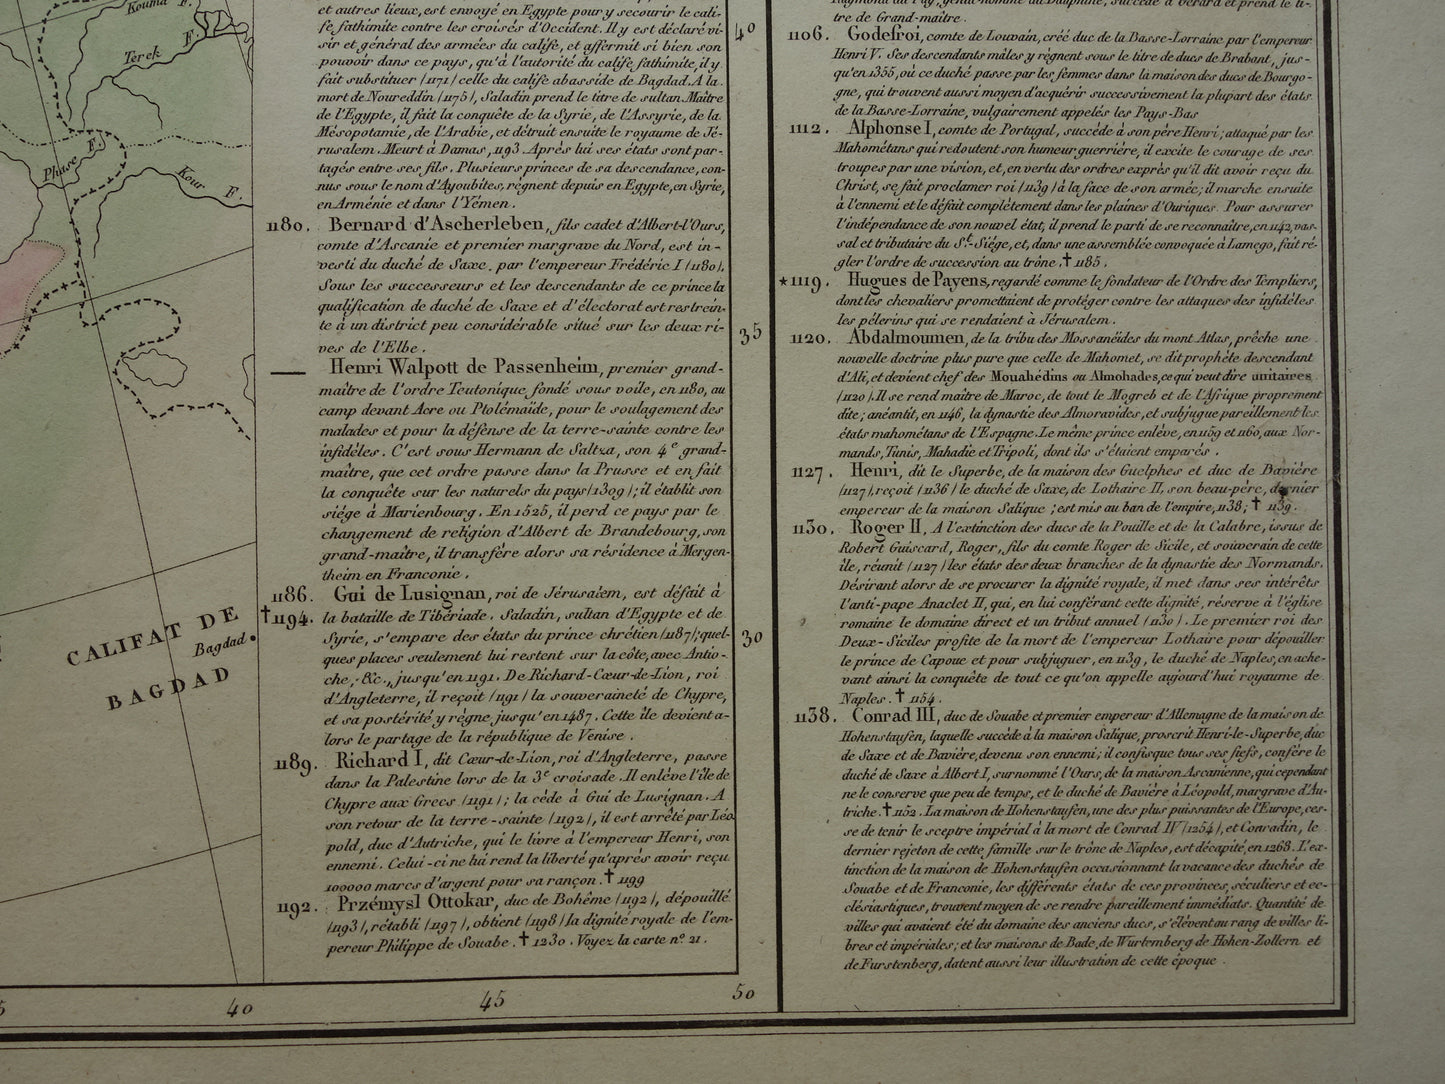 Kouma F.
Terek
F.
Phase F.
Kour F.
CALIFAT DE
Bagdad
BAGDAD
et autres lieux, est envoyé en Egypte pour y secourir le cali-
fe fathimite contre les croisés d'Occident. Il y est déclaré vi-
sir et général des armées du calife, et affermit si bien son
pouvoir dans ce pays, qu'à l'autorité du calife fathimite, il y
fait substituer /1171/ celle du calife abasside de Bagdad. A la
mort de Noureddin /1175/, Saladin prend le titre de sultan. Maître
de l'Egypte, il fait la conquête de la Syrie, de l'Assyrie, de la
Mésopotamie, de l'Arabie, et détruit ensuite le royaume de Jé-
rusalem. Meurt à Damas, 1193. Après lui ses états sont par-
tagés entre ses fils. Plusieurs princes de sa descendance, con-
nus sous le nom d'Ayoubites, règnent depuis en Egypte, en Syrie,
en Arménie et dans l'Yémen.
1180. Bernard d'Ascherleben, fils cadet d'Albert-l'Ours,
comte d'Ascanie et premier margrave du Nord, est in-
vesti du duché de Saxe, par l'empereur Frédéric I /1180/.
Sous les successeurs et les descendants de ce prince la
qualification de duché de Saxe et d'électorat est restrein-
te à un district peu considérable situé sur les deux ri-
ves de l'Elbe.
— Henri Walpott de Passenheim, premier grand-
maître de l'ordre Teutonique, fondé sous voile, en 1180, au
camp devant Acre ou Ptolémaïde, pour le soulagement des
malades et pour la défense de la terre-sainte contre les
infidèles. C'est sous Hermann de Saltza, son 4e grand-
maître, que cet ordre passe dans la Prusse et en fait
la conquête sur les naturels du pays /1309/; il établit son
siége à Marienbourg. En 1525, il perd ce pays par le
changement de religion d'Albert de Brandebourg, son
grand-maître, il transfère alors sa résidence à Mergen-
theim en Franconie.
1186. Gui de Lusignan, roi de Jérusalem, est défait à
†1194. la bataille de Tibériade. Saladin, sultan d'Egypte et de
Syrie, s'empare des états du prince chrétien /1187/; quel-
ques places seulement lui restent sur la côte, avec Antio-
che, &c., jusqu'en 1191. De Richard-Cœur-de-Lion, roi
d'Angleterre, il reçoit /1191/ la souveraineté de Chypre,
et sa postérité y règne jusqu'en 1487. Cette île devient a-
lors le partage de la république de Venise.
1189. Richard I, dit Cœur-de-Lion, roi d'Angleterre, passe
dans la Palestine lors de la 3e croisade. Il enlève l'île de
Chypre aux Grecs /1191/; la cède à Gui de Lusignan. A
son retour de la terre-sainte /1192/, il est arrêté par Léo
pold, duc d'Autriche, qui le livre à l'empereur Henri, son
ennemi. Celui-ci ne lui rend la liberté qu'après avoir reçu
100000 marcs d'argent pour sa rançon. † 1199
1192. Przémysl Ottokar, duc de Bohême /1192/, dépouillé
/1193/, rétabli /1197/, obtient /1198/ la dignité royale de l'em-
pereur Philippe de Souabe. † 1230. Voyez la carte no. 21.
40
35
30
40
45
50
tre de Grand-maître.
1106. Godefroi, comte de Louvain, créé duc de la Basse-Lorraine par l'empereur
Henri V. Ses descendants mâles y règnent sous le titre de ducs de Brabant, jus-
qu'en 1355, où ce duché passe par les femmes dans la maison des ducs de Bourgo-
gne, qui trouvent aussi moyen d'acquérir successivement la plupart des états
de la Basse-Lorraine, vulgairement appelés les Pays-Bas
1112. Alphonse I, comte de Portugal, succède à son père Henri; attaqué par les
Mahométans qui redoutent son humeur guerrière, il excite le courage de ses
troupes par une vision, et, en vertu des ordres exprès qu'il dit avoir reçu du
Christ, se fait proclamer roi /1139/ à la face de son armée; il marche ensuite
à l'ennemi et le défait complètement dans les plaines d'Ouriques. Pour assurer
l'indépendance de son nouvel état, il prend le parti de se reconnaître, en 1142, vas-
sal et tributaire du St.-Siége, et, dans une assemblée convoquée à Lamego, fait ré-
gler l'ordre de succession au trône. † 1185.
★1119. Hugues de Payens, regardé comme le fondateur de l'Ordre des Templiers,
dont les chevaliers promettaient de protéger contre les attaques des infidèles
les pélerins qui se rendaient à Jérusalem.
1120. Abdalmoumen, de la tribu des Mossanéides du mont Atlas, prêche une
nouvelle doctrine plus pure que celle de Mahomet, se dit prophète descendant
d'Ali, et devient chef des Mouahédins ou Almohades, ce qui veut dire unitaires
/1120/. Il se rend maître de Maroc, de tout le Mogreb et de l'Afrique proprement
dite; anéantit, en 1146, la dynastie des Almoravides, et subjugue pareillement les
états mahométans de l'Espagne. Le même prince enlève, en 1159 et 1160, aux Nor-
mands, Tunis, Mahadie et Tripoli, dont ils s'étaient emparés.
1127. Henri, dit le Superbe, de la maison des Guelphes et duc de Bavière
/1127/, reçoit /1136/ le duché de Saxe, de Lothaire II, son beau-père, dernier
empereur de la maison Salique; est mis au ban de l'empire, 1138; † 1139.
1130. Roger II, A l'extinction des ducs de la Pouille et de la Calabre, issus de
Robert Guiscard, Roger, fils du comte Roger de Sicile, et souverain de cette
île, réunit /1127/ les états des deux branches de la dynastie des Normands.
Désirant alors de se procurer la dignité royale, il met dans ses intérêts
l'anti-pape Anaclet II, qui, en lui conférant cette dignité, réserve à l'église
romaine le domaine direct et un tribut annuel /1130/. Le premier roi des
Deux-Siciles profite de la mort de l'empereur Lothaire pour dépouiller
le prince de Capoue et pour subjuguer, en 1139, le duché de Naples, en ache-
vant ainsi la conquête de tout ce qu'on appelle aujourd'hui royaume de
Naples. † 1154.
1138. Conrad III, duc de Souabe et premier empereur d'Allemagne de la maison de
Hohenstaufen, laquelle succède à la maison Salique, proscrit Henri-le-Superbe, duc
de Saxe et de Bavière, devenu son ennemi; il confisque tous ses fiefs, confère le
duché de Saxe à Albert I, surnommé l'Ours, de la maison Ascanienne, qui cependant
ne le conserve que peu de temps, et le duché de Bavière à Léopold, margrave d'Au-
triche. † 1152. La maison de Hohenstaufen, une des plus puissantes de l'Europe, ces-
se de tenir le sceptre impérial à la mort de Conrad IV /1254/, et Conradin, le
dernier rejeton de cette famille sur le trône de Naples, est décapité, en 1268. L'ex-
tinction de la maison de Hohenstaufen occasionnant la vacance des duchés de
Souabe et de Franconie, les différents états de ces provinces, séculiers et ec-
clésiastiques, trouvent moyen de se rendre pareillement immédiats. Quantité de
villes qui avaient été du domaine des anciens ducs, s'élèvent au rang de villes li-
bres et impériales; et les maisons de Bade, de Wurtemberg de Hohen-Zollern et
de Furstenberg, datent aussi leur illustration de cette époque.